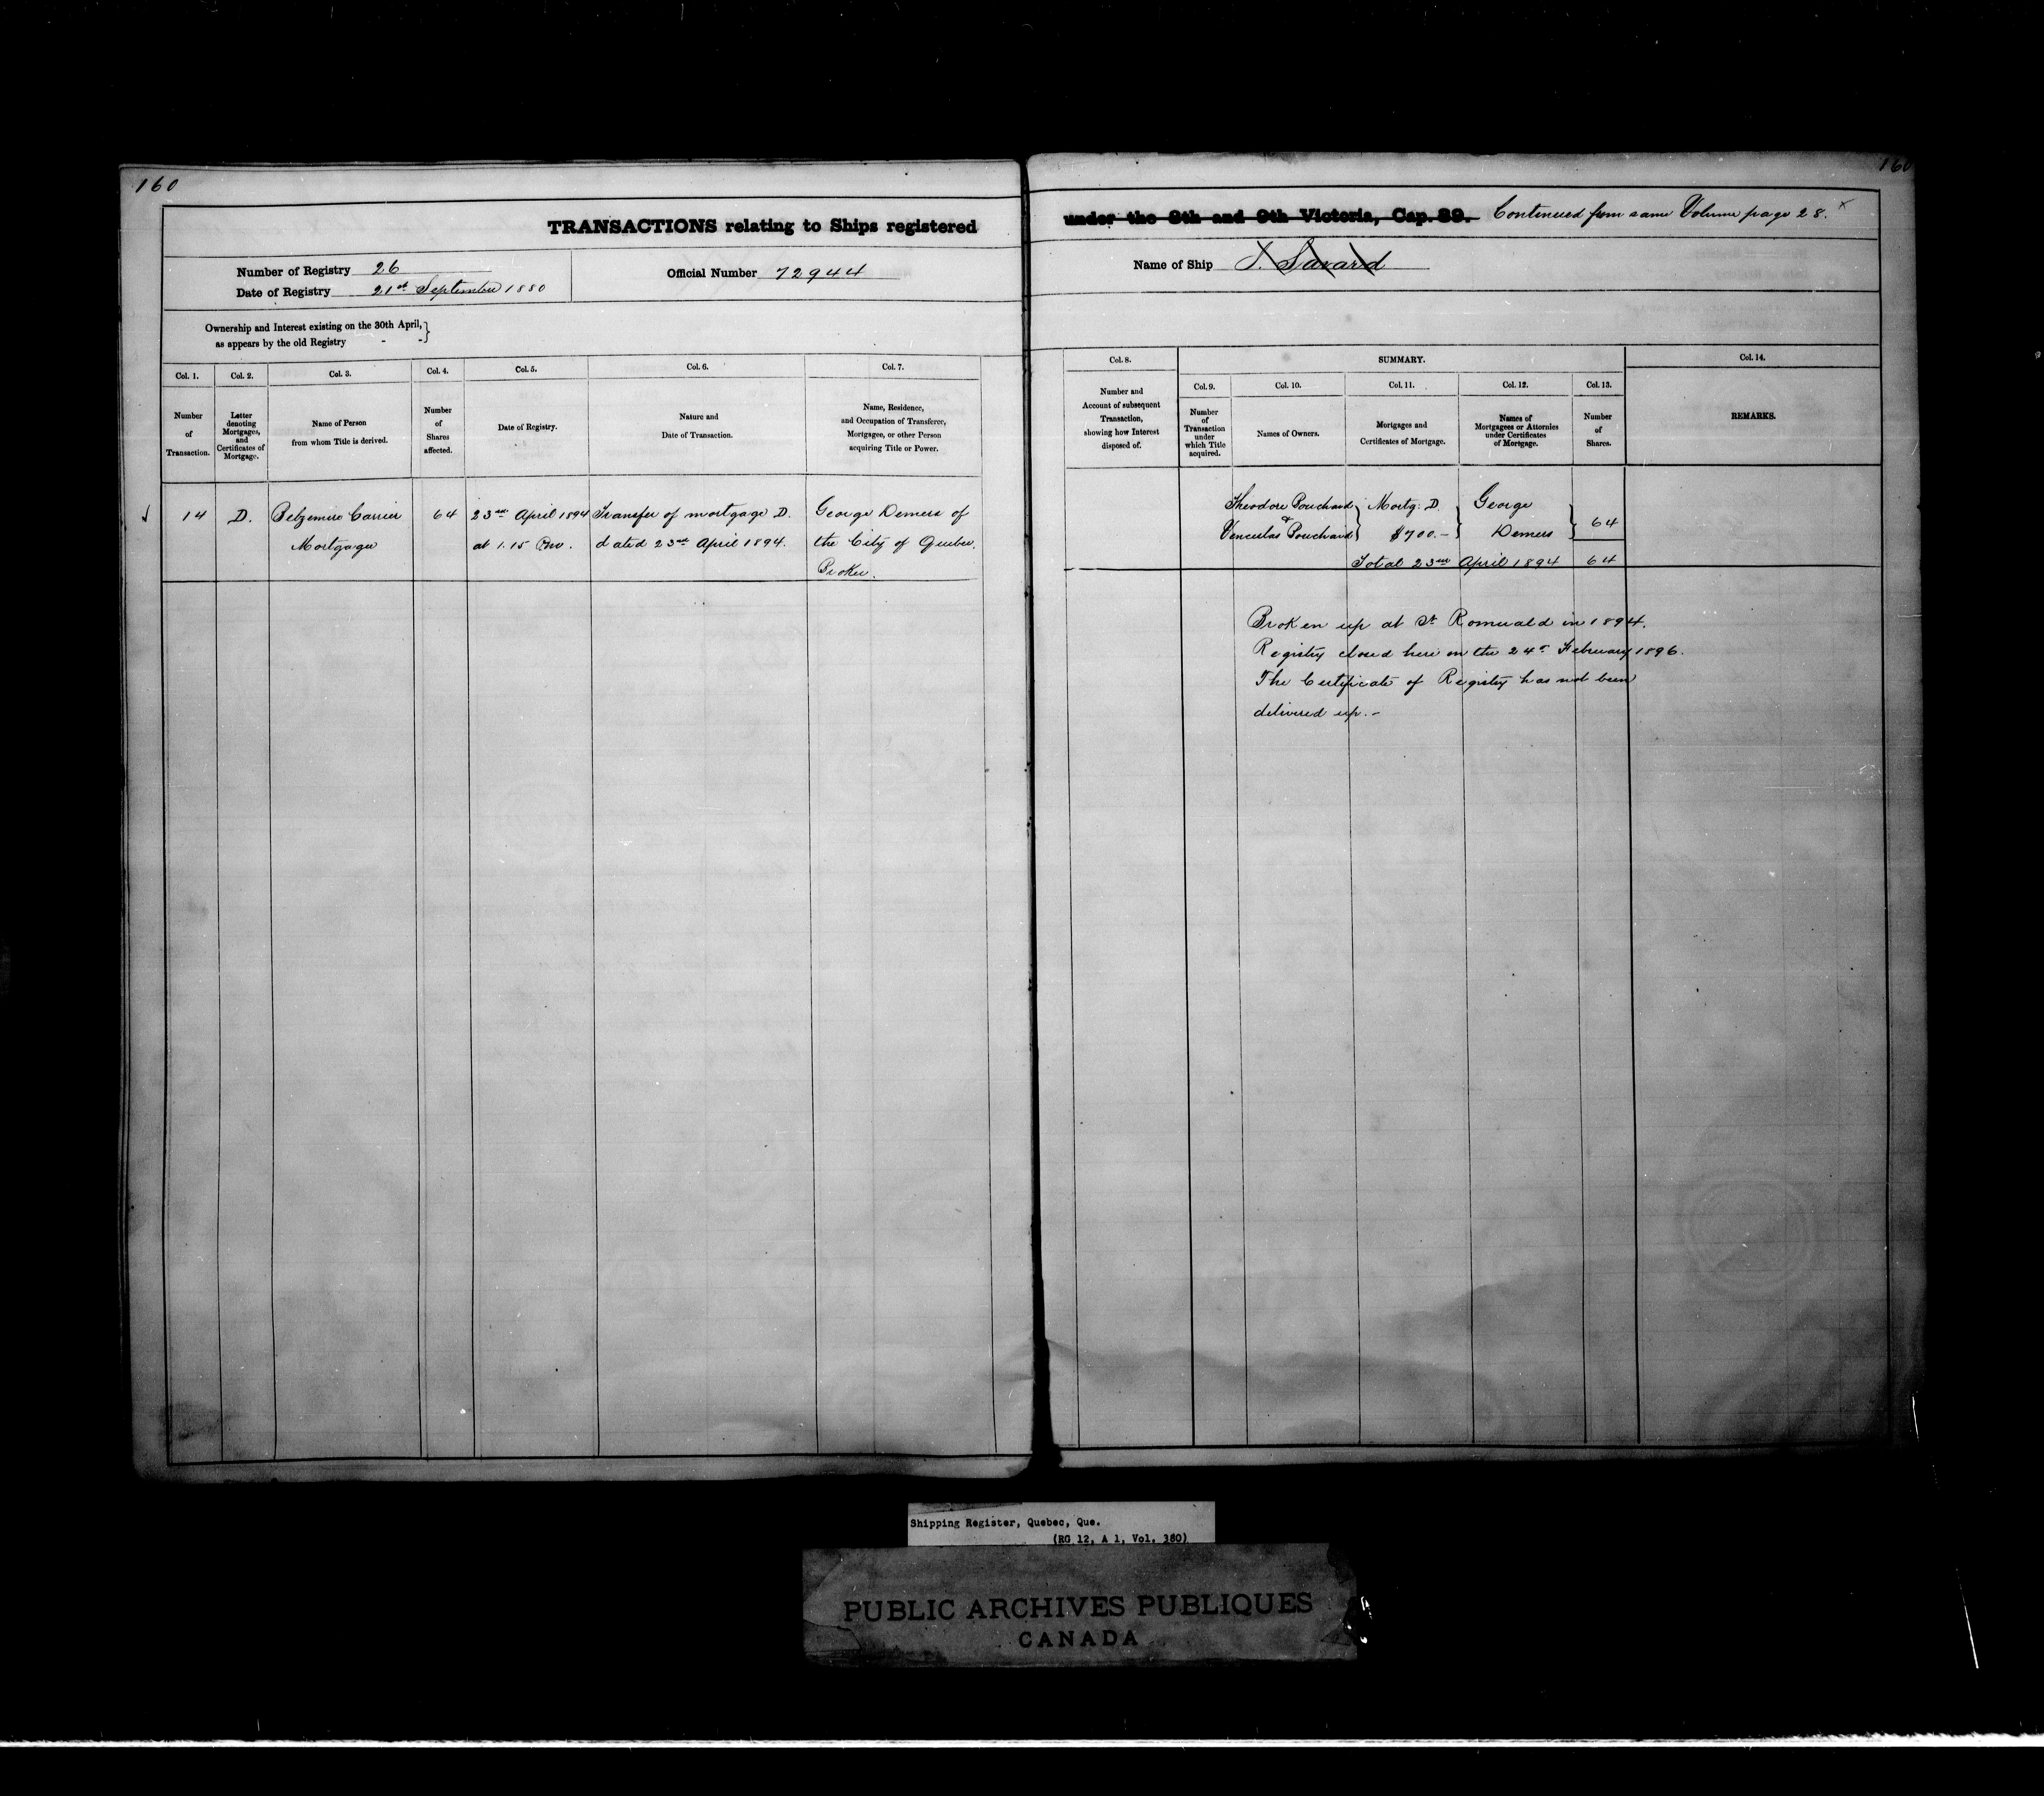 160
160
TRANSACTIONS relating to Ships registered under the 8th and 9th Victoria, Cap. 89. Continued from same Volume page 28. x
Number of Registry 26
Date of Registry 21st September 1880
Official Number 72944
Name of Ship J. Savard
Ownership and Interest existing on the 30th April, }
as appears by the old Registry - -
Col. 1.
Number
of
Transaction.
Col. 2.
Letter
denoting
Mortgages,
and
Certificates of
Mortgage.
Col. 3.
Name of Person
from whom Title is derived.
Col. 4.
Number
of
Shares
affected.
Col. 5.
Date of Registry.
Col. 6.
Nature and
Date of Transaction.
Col. 7.
Name, Residence,
and Occupation of Transferee,
Mortgagee, or other Person
acquiring Title or Power.
Col. 8.
Number and
Account of subsequent
Transaction,
showing how Interest
disposed of.
SUMMARY.
Col. 9.
Number
of
Transaction
under
which Title
acquired.
Col. 10.
Names of Owners.
Col. 11.
Mortgages and
Certificates of Mortgage.
Col. 12.
Names of
Mortgagees or Attornies
under Certificates
of Mortgage.
Col. 13.
Number
of
Shares.
Col. 14.
REMARKS.
14
D.
Belzemire Carrier
Mortgagee
64
23rd April 1894
at 1.15 Pm.
Transfer of mortgage D.
dated 23rd April 1894.
George Demers of
the City of Quebec,
Broker.
Theodore Bouchard
&
Venceslas Bouchard
Mortg. D.
$700.-
George
Demers
64
Total 23rd April 1894 64
Broken up at St Romuald in 1894.
Registry closed here on the 24th February 1896.
The Certificate of Registry has not been
delivered up.-
Shipping Register, Quebec, Que.
(RG 12, A 1, Vol. 380)
PUBLIC ARCHIVES PUBLIQUES
CANADA